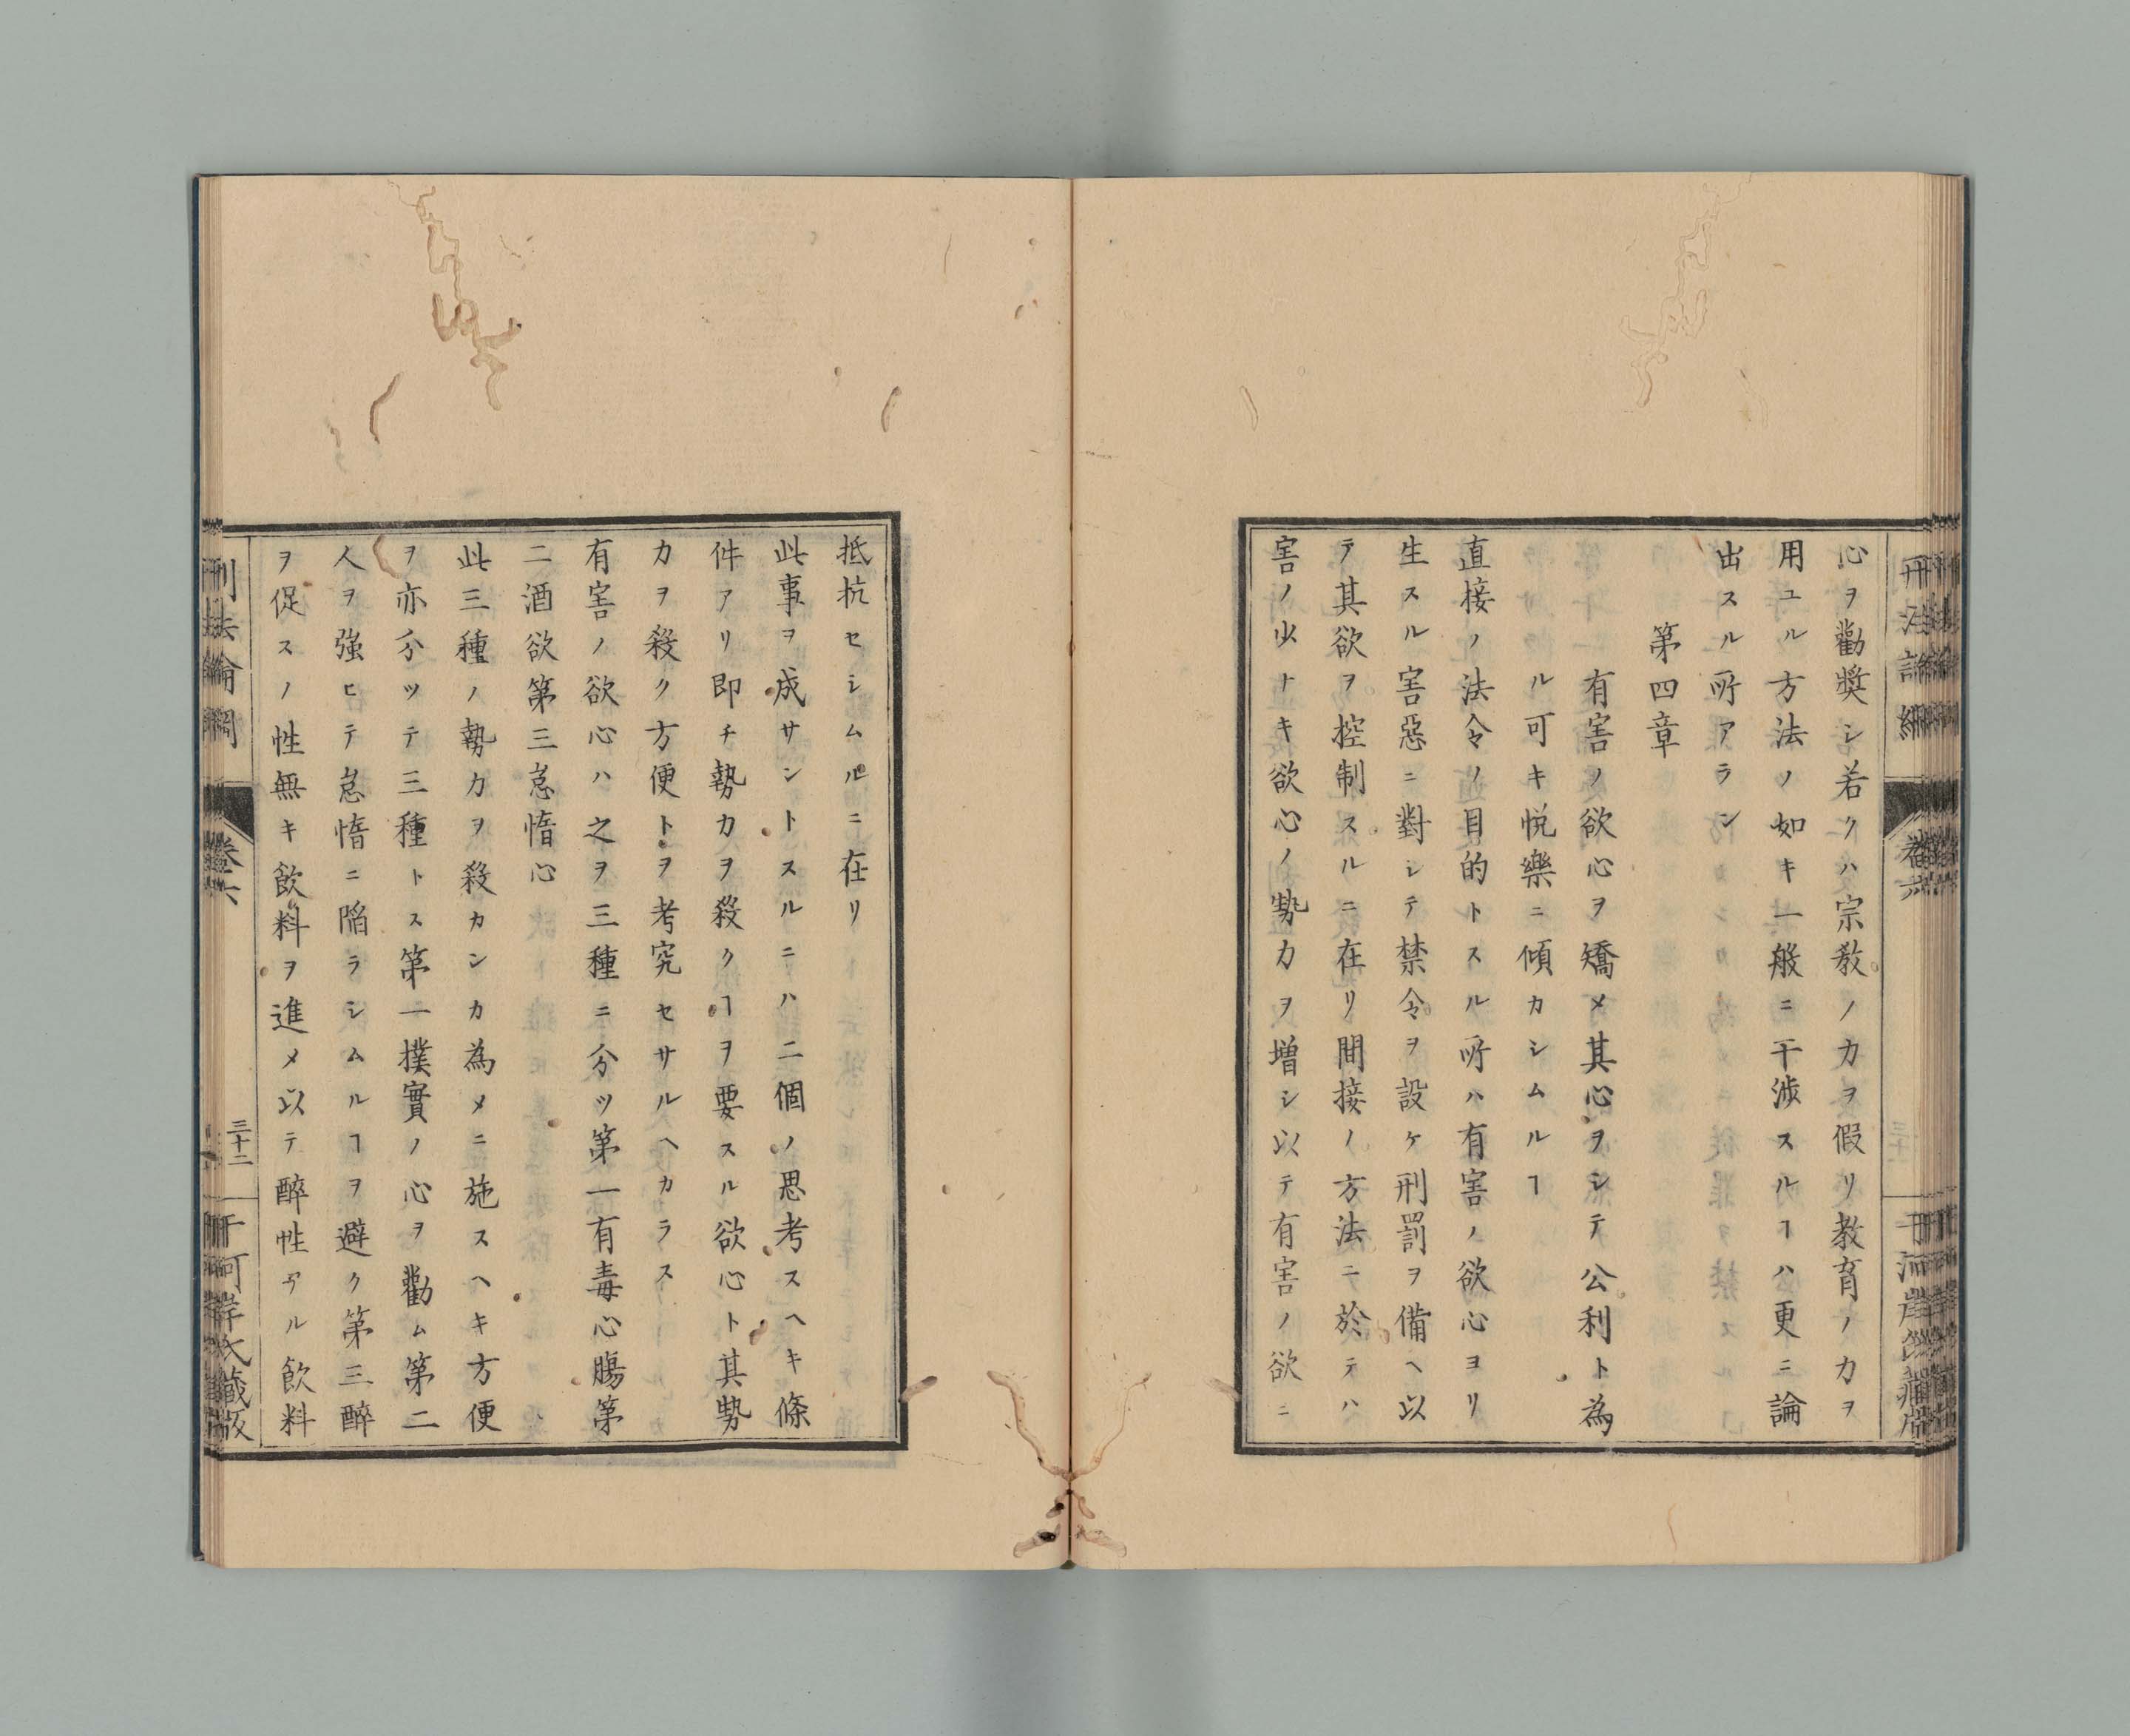 心ヲ勸奬シ若クハ宗教ノ力ヲ假リ教育ノ力ヲ
用ユル方法ノ如キ一般ニ干渉スルヿハ更ニ論
出スル所アラン
第四章
有害ノ欲心ヲ矯メ其心ヲシテ公利ト為
ル可キ悦樂ニ傾カシムルヿ
直接ノ法令ノ目的トスル所ハ有害ノ欲心ヨリ
生スル害惡ニ對シテ禁令ヲ設ケ刑罰ヲ備ヘ以
テ其欲ヲ控制スルニ在リ間接ノ方法ニ於テハ
害ノ少ナキ欲心ノ勢力ヲ増シ以テ有害ノ欲ニ
抵抗セシムルニ在リ
此事ヲ成サントスルニハ二個ノ思考スヘキ條
件アリ即チ勢力ヲ殺クヿヲ要スル欲心ト其勢
力ヲ殺ク方便トヲ考究セサルヘカラス
有害ノ欲心ハ之ヲ三種ニ分ツ第一有毒心膓第
二酒欲第三怠惰心
此三種ノ勢力ヲ殺カンカ為メニ施スヘキ方便
ヲ亦分ツテ三種トス第一撲實ノ心ヲ勸ム第二
人ヲ強ヒテ怠惰ニ陥ラシムルヿヲ避ク第三醉
ヲ促スノ性無キ飲料ヲ進メ以テ醉性アル飲料
刑法論綱
卷六
三十二
干河岸氏藏版